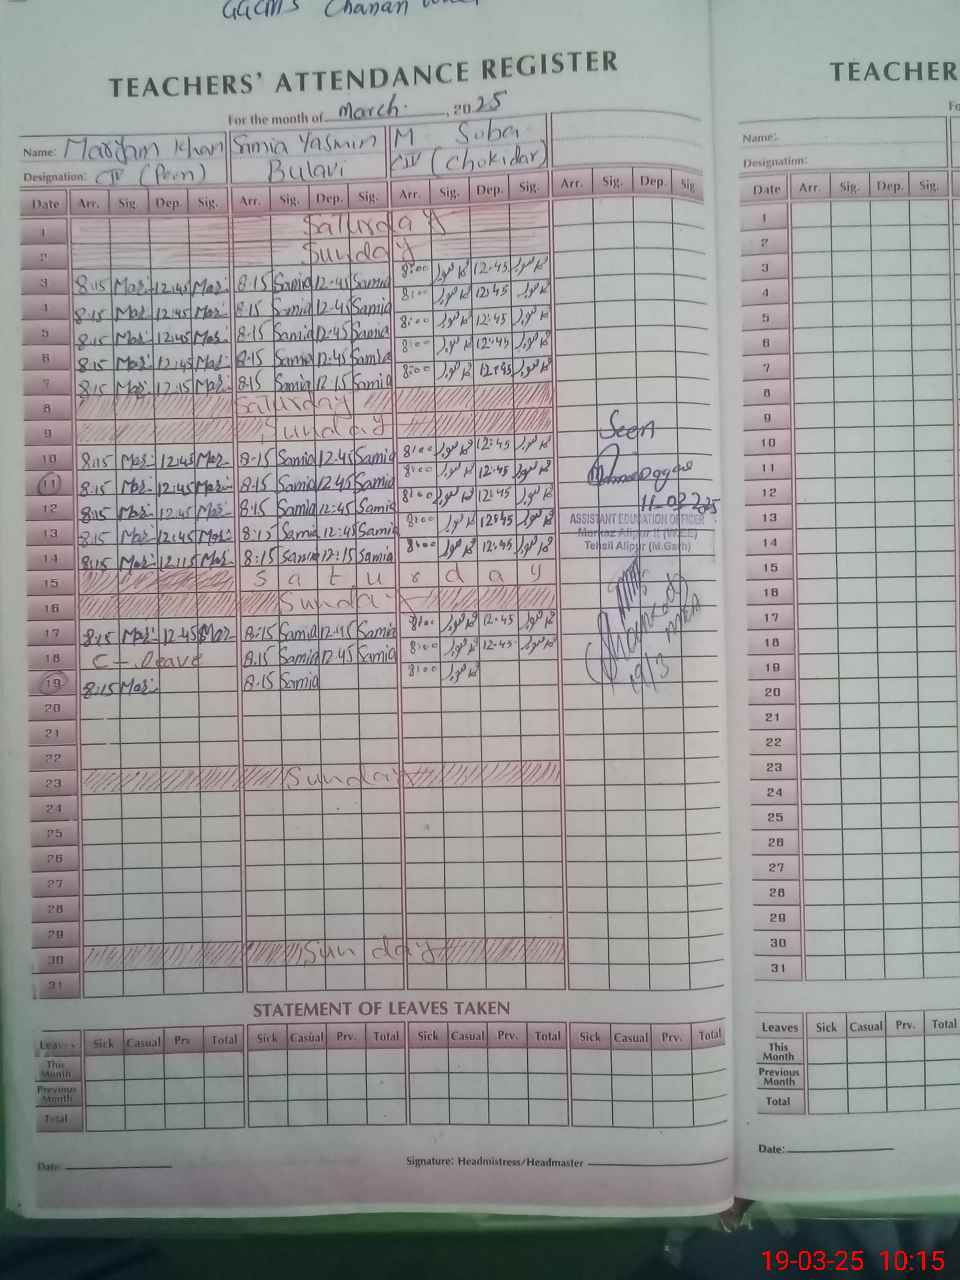 GGCMS Chanan
TEACHERS' ATTENDANCE REGISTER
For the month of March. , 2025
Name: Mariam Khan Samia Yasmin M Suba
Designation: CIV (Peon) Bulavi CIV (Chokidar)
Date Arr. Sig. Dep. Sig. Arr. Sig. Dep. Sig. Arr. Sig. Dep. Sig. Arr. Sig. Dep. Sig
1 Saturday
2 Sunday
3 8:15 Mar. 12:45 Mar. 8:15 Samia 12:45 Samia 8:00 12:45
4 8:15 Mar. 12:45 Mar. 8:15 Samia 12:45 Samia 8:00 12:45
5 8:15 Mar. 12:45 Mar. 8:15 Samia 12:45 Samia 8:00 12:45
6 8:15 Mar. 12:45 Mar. 8:15 Samia 12:45 Samia 8:00 12:45
7 8:15 Mar. 12:15 Mar. 8:15 Samia 12:15 Samia 8:00 12:45
8 Saturday
9 Sunday
Seen
10 8:15 Mar. 12:45 Mar. 8:15 Samia 12:45 Samia 8:00 12:45
11 8:15 Mar. 12:45 Mar. 8:15 Samia 12:45 Samia 8:00 12:45
12 8:15 Mar. 12:45 Mar. 8:15 Samia 12:45 Samia 8:00 12:45
11-03-2025
13 8:15 Mar. 12:45 Mar. 8:15 Samia 12:45 Samia 8:00 12:45
ASSISTANT EDUCATION OFFICER
Markaz Alipur II (W.E.E)
Tehsil Alipur (M.Garh)
14 8:15 Mar. 12:15 Mar. 8:15 Samia 12:15 Samia 8:00 12:45
15 Saturday
16 Sunday
17 8:15 Mar. 12:45 Mar. 8:15 Samia 12:45 Samia 8:00 12:45
18 C-Leave 8:15 Samia 12:45 Samia 8:00 12:45
19 8:15 Mar. 8:15 Samia 8:00
MEA
19/3
20
21
22
23 Sunday
24
25
26
27
28
29
30 Sunday
31
STATEMENT OF LEAVES TAKEN
Leaves Sick Casual Prv Total Sick Casual Prv. Total Sick Casual Prv. Total Sick Casual Prv. Total
This Month
Previous Month
Total
Date: Signature: Headmistress/Headmaster
TEACHER
Fo
Name:
Designation:
Date Arr. Sig. Dep. Sig.
1
2
3
4
5
6
7
8
9
10
11
12
13
14
15
16
17
18
19
20
21
22
23
24
25
26
27
28
29
30
31
Leaves Sick Casual Prv. Total
This Month
Previous Month
Total
Date:
19-03-25 10:15